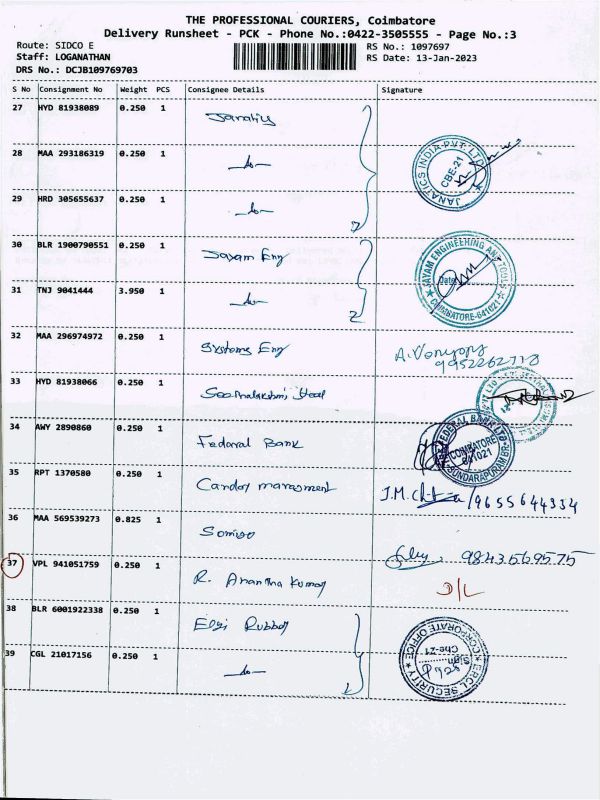 THE PROFESSIONAL COURIERS, Coimbatore
Delivery Runsheet - PCK - Phone No.:0422-3505555 - Page No.:3
Route: SIDCO E RS No.: 1097697
Staff: LOGANATHAN RS Date: 13-Jan-2023
DRS No.: DCJB109769703
S No Consignment No Weight PCS Consignee Details Signature
27 HYD 81938089 0.250 1
JANATICS INDIA PVT. LTD. CBE-21
28 MAA 293186319 0.250 1
29 HRD 305655637 0.250 1
30 BLR 1900790551 0.250 1 Jayam Eng
JAYAM ENGINEERING AND TOOLS COIMBATORE-641021
31 TNJ 9041444 3.950 1
32 MAA 296974972 0.250 1 Systems Eng 9952262718
33 HYD 81938066 0.250 1
34 AWY 2890860 0.250 1 Fedaral Bank
FEDERAL BANK LTD COIMBATORE 641021 SUNDARAPURAM BR
35 RPT 1370580 0.250 1 J.M. 9655644334
36 MAA 569539273 0.825 1 9843569575
37 VPL 941051759 0.250 1 R. Anantha Kumar O/L
38 BLR 6001922338 0.250 1 Elgi Rubber
39 CGL 21017156 0.250 1
SECURITY CORPORATE OFFICE Sign Cbe-21